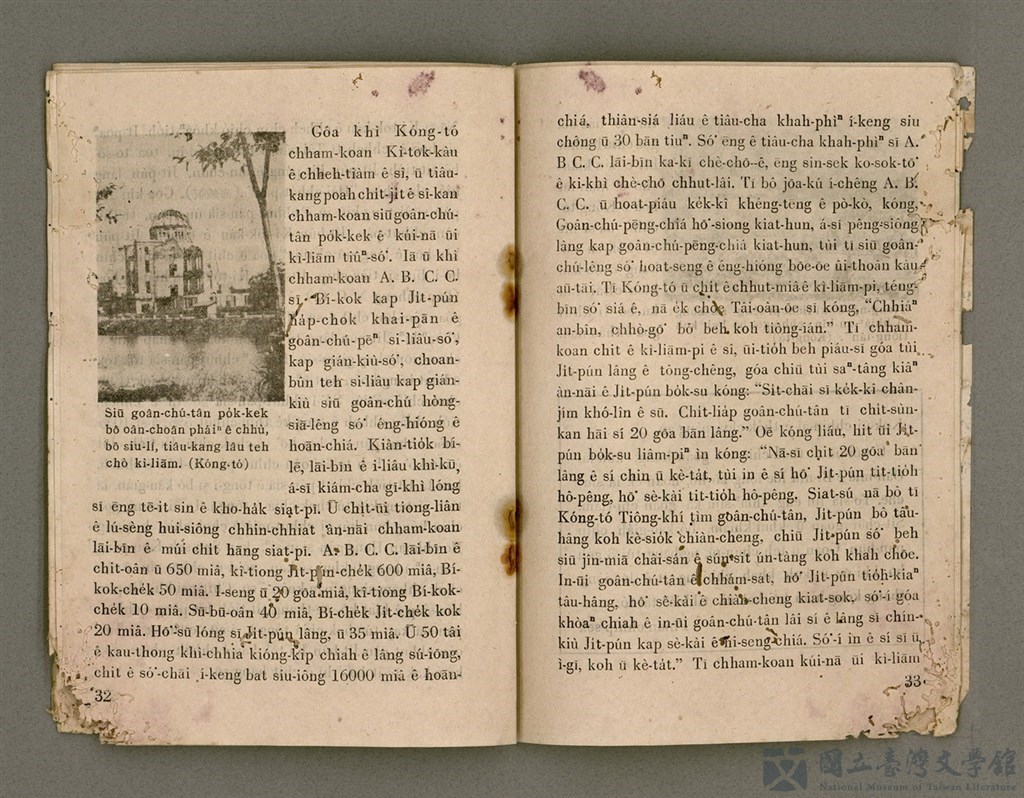 Góa khì Kóng-tó
chham-koan Ki-tok-kàu
ê chheh-tiàm ê sî, ū tiâu-
kang poah chi̍t-ji̍t ê sî-kan
chham-koan siū goân-chú-
tân po̍k-kek ê kúi-nā ūi
kì-liām tiûⁿ-só͘. Iā ū khì
chham-koan A. B. C. C.
sī Bí-kok kap Ji̍t-pún
ha̍p-chok khai-pān ê
goân-chú-pēⁿ sí-liâu-só͘,
kap gián-kiù-só͘, choan-
bûn teh sí-liâu kap gián-
kiù siū goân-chú hòng-
siā-lêng só͘ éng-hióng ê
hoān-chiá. Kiàn-tio̍k bí-
lē, lāi-bīn ê i-liâu khì-kū,
á-sī kiám-cha gî-khì lóng
sī ēng tē-it sin ê kho-ha̍k siat-pī. Ū chi̍t-ūi tiong-liân
ê lú-sèng hui-siông chhin-chhiat àn-nāi chham-koan
lāi-bīn ê múi chi̍t hāng siat-pī. A. B. C. C. lāi-bīn ê
chit-oân ū 650 miâ, kî-tiong Ji̍t-pún-che̍k 600 miâ, Bí-
kok-che̍k 50 miâ. I-seng ū 20 gōa miâ, kî-tiong Bí-kok-
che̍k 10 miâ. Sū-bū-oân 40 miâ, Bí-che̍k Ji̍t-che̍k kok
20 miâ. Hō͘-sū lóng sī Ji̍t-pún lâng, ū 35 miâ. Ū 50 tâi
ê kau-thong khì-chhia kióng-kip chiah ê lâng sú-iōng,
chit ê só͘-chāi í-keng bat siu-iông 16000 miâ ê hoān-
Siū goân-chú-tân po̍k-kek
bô oân-choân pháiⁿ ê chhù,
bô siu-lí, tiâu-kang lâu teh
chò kì-liām. (Kóng-tó)
32
chiá, thiân-siá liáu ê tiâu-cha khah-phìⁿ í-keng siu
chông ū 30 bān tiuⁿ. Só͘ ēng ê tiâu-cha khah-phìⁿ sī A.
B C. C. lāi-bīn ka-kī chè-chō--ê, ēng sin-sek ko-sok-tō͘
ê ki-khì chè-chō chhut-lâi. Tī bô jōa-kú í-chêng A. B.
C. C. ū hoat-piáu ke̍k-kî khéng-tēng ê pò-kò, kóng,
Goân-chú-pēng-chiá hō͘-siong kiat-hun, á-sī pêng-siông
lâng kap goân-chú-pēng-chiá kiat-hun, tùi tī siū goân-
chú-lêng só͘ hoat-seng ê éng-hióng bōe-ōe ûi-thoân kàu
aū-tāi. Tī Kóng-tó ū chi̍t ê chhut-miâ ê kì-liām-pi, téng-
bīn só͘ siá ê, nā e̍k chòe Tâi-oân-ōe sī kóng, “Chhiáⁿ
an-bîn, chhò-gō͘ bô beh koh tiông-ián.” Tī chham-
koan chit ê kì-liām-pi ê sî, ūi-tio̍h beh piáu-sī góa tùi
Ji̍t-pún lâng ê tông-chêng, góa chiū tùi saⁿ-tâng kiâⁿ
àn-nāi ê Ji̍t-pún bo̍k-su kóng: “Si̍t-chāi sī ke̍k-kî chân-
jím khó-lîn ê sū. Chi̍t-lia̍p goân-chú-tân tī chi̍t-sùn-
kan hāi sí 20 gōa bān lâng.” Oē kóng liáu, hit ūi Ji̍t-
pún bo̍k-su liâm-piⁿ ìn kóng: “Nā-sī chit 20 gōa bān
lâng ê sí chin ū kè-ta̍t, tùi in ê sí hō͘ Ji̍t-pún tit-tio̍h
hô-pêng, hō͘ sè-kài tit-tio̍h hô-pêng. Siat-sú nā bô tī
Kóng-tó Tiông-khí tìm goân-chú-tân, Ji̍t-pún bô tâu-
hâng koh kè-sio̍k chiàn-cheng, chiū Ji̍t-pún só͘ beh
siū jîn-miā châi-sán ê sún-sit ún-tàng koh khah chōe.
In-ūi goân-chú-tân ê chhám-sat, hō͘ Ji̍t-pún tio̍h-kiaⁿ
tâu-hâng, hō͘ sè-kài ê chiàn-cheng kiat-sok, só͘-í góa
khòaⁿ chiah ê in-ūi goân-chú-tân lâi sí ê lâng sī chín-
kiù Ji̍t-pún kap sè-kài ê hi-seng-chiá. Só͘-í in ê sí sī ū
ì-gī, koh ū kè-ta̍t.” Tī chham-koan kúi-nā ūi kì-liām
33
國立臺灣文學館
National Museum of Taiwan Literature